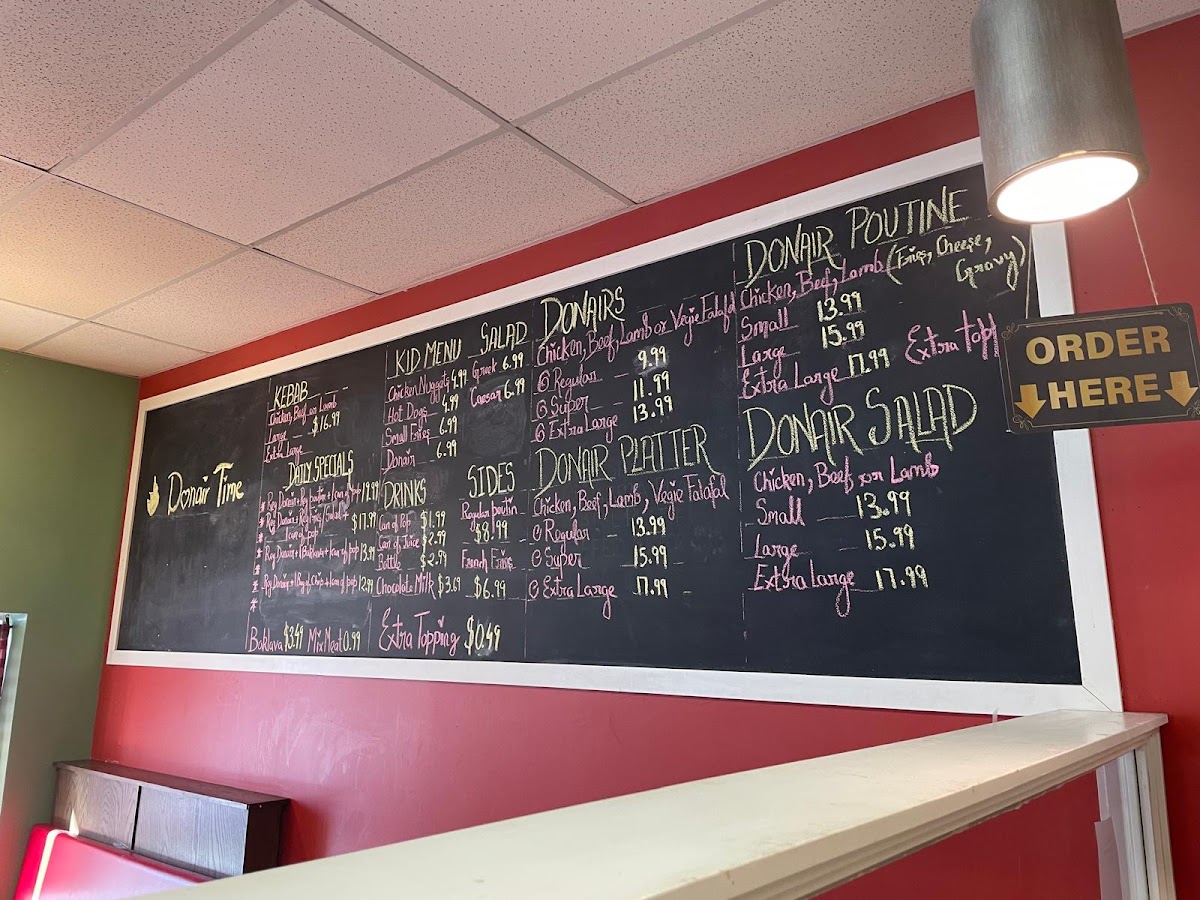 Donair Time
KEBAB
Chicken, Beef or Lamb
Large $16.99
Extra Large
DAILY SPECIALS
* Reg Donair + Reg poutin + 1 can of pop 19.99
* Reg Donair + Reg Fries/Salad + $17.99
1 can of pop
* Reg Donair + 1 Baklava + 1 can of pop 13.99
*
* Reg Donair + 1 Bag of Chips + 1 can of pop 12.99
*
Baklava $3.49 Mix Meat 0.99
KID MENU
Chicken Nuggets 4.99
Hot Dogs 4.99
Small Fries 6.99
Donair 6.99
SALAD
Greek 6.99
Caesar 6.99
DRINKS
Can of Pop $1.99
Can of Juice $2.99
Bottle $2.99
Chocolate Milk $3.69
SIDES
Regular poutin
$8.99
French Fries
$6.99
Extra Topping $0.49
DONAIRS
Chicken, Beef, Lamb or Vegie Falafel
Regular 9.99
Super 11.99
Extra Large 13.99
DONAIR PLATTER
Chicken, Beef, Lamb, Vegie Falafal
Regular 13.99
Super 15.99
Extra Large 17.99
DONAIR POUTINE
Chicken, Beef, Lamb (Fries, Cheese,
Gravy)
Small 13.99
Large 15.99
Extra Large 17.99 Extra
DONAIR SALAD
Chicken, Beef or Lamb
Small 13.99
Large 15.99
Extra Large 17.99
ORDER
HERE